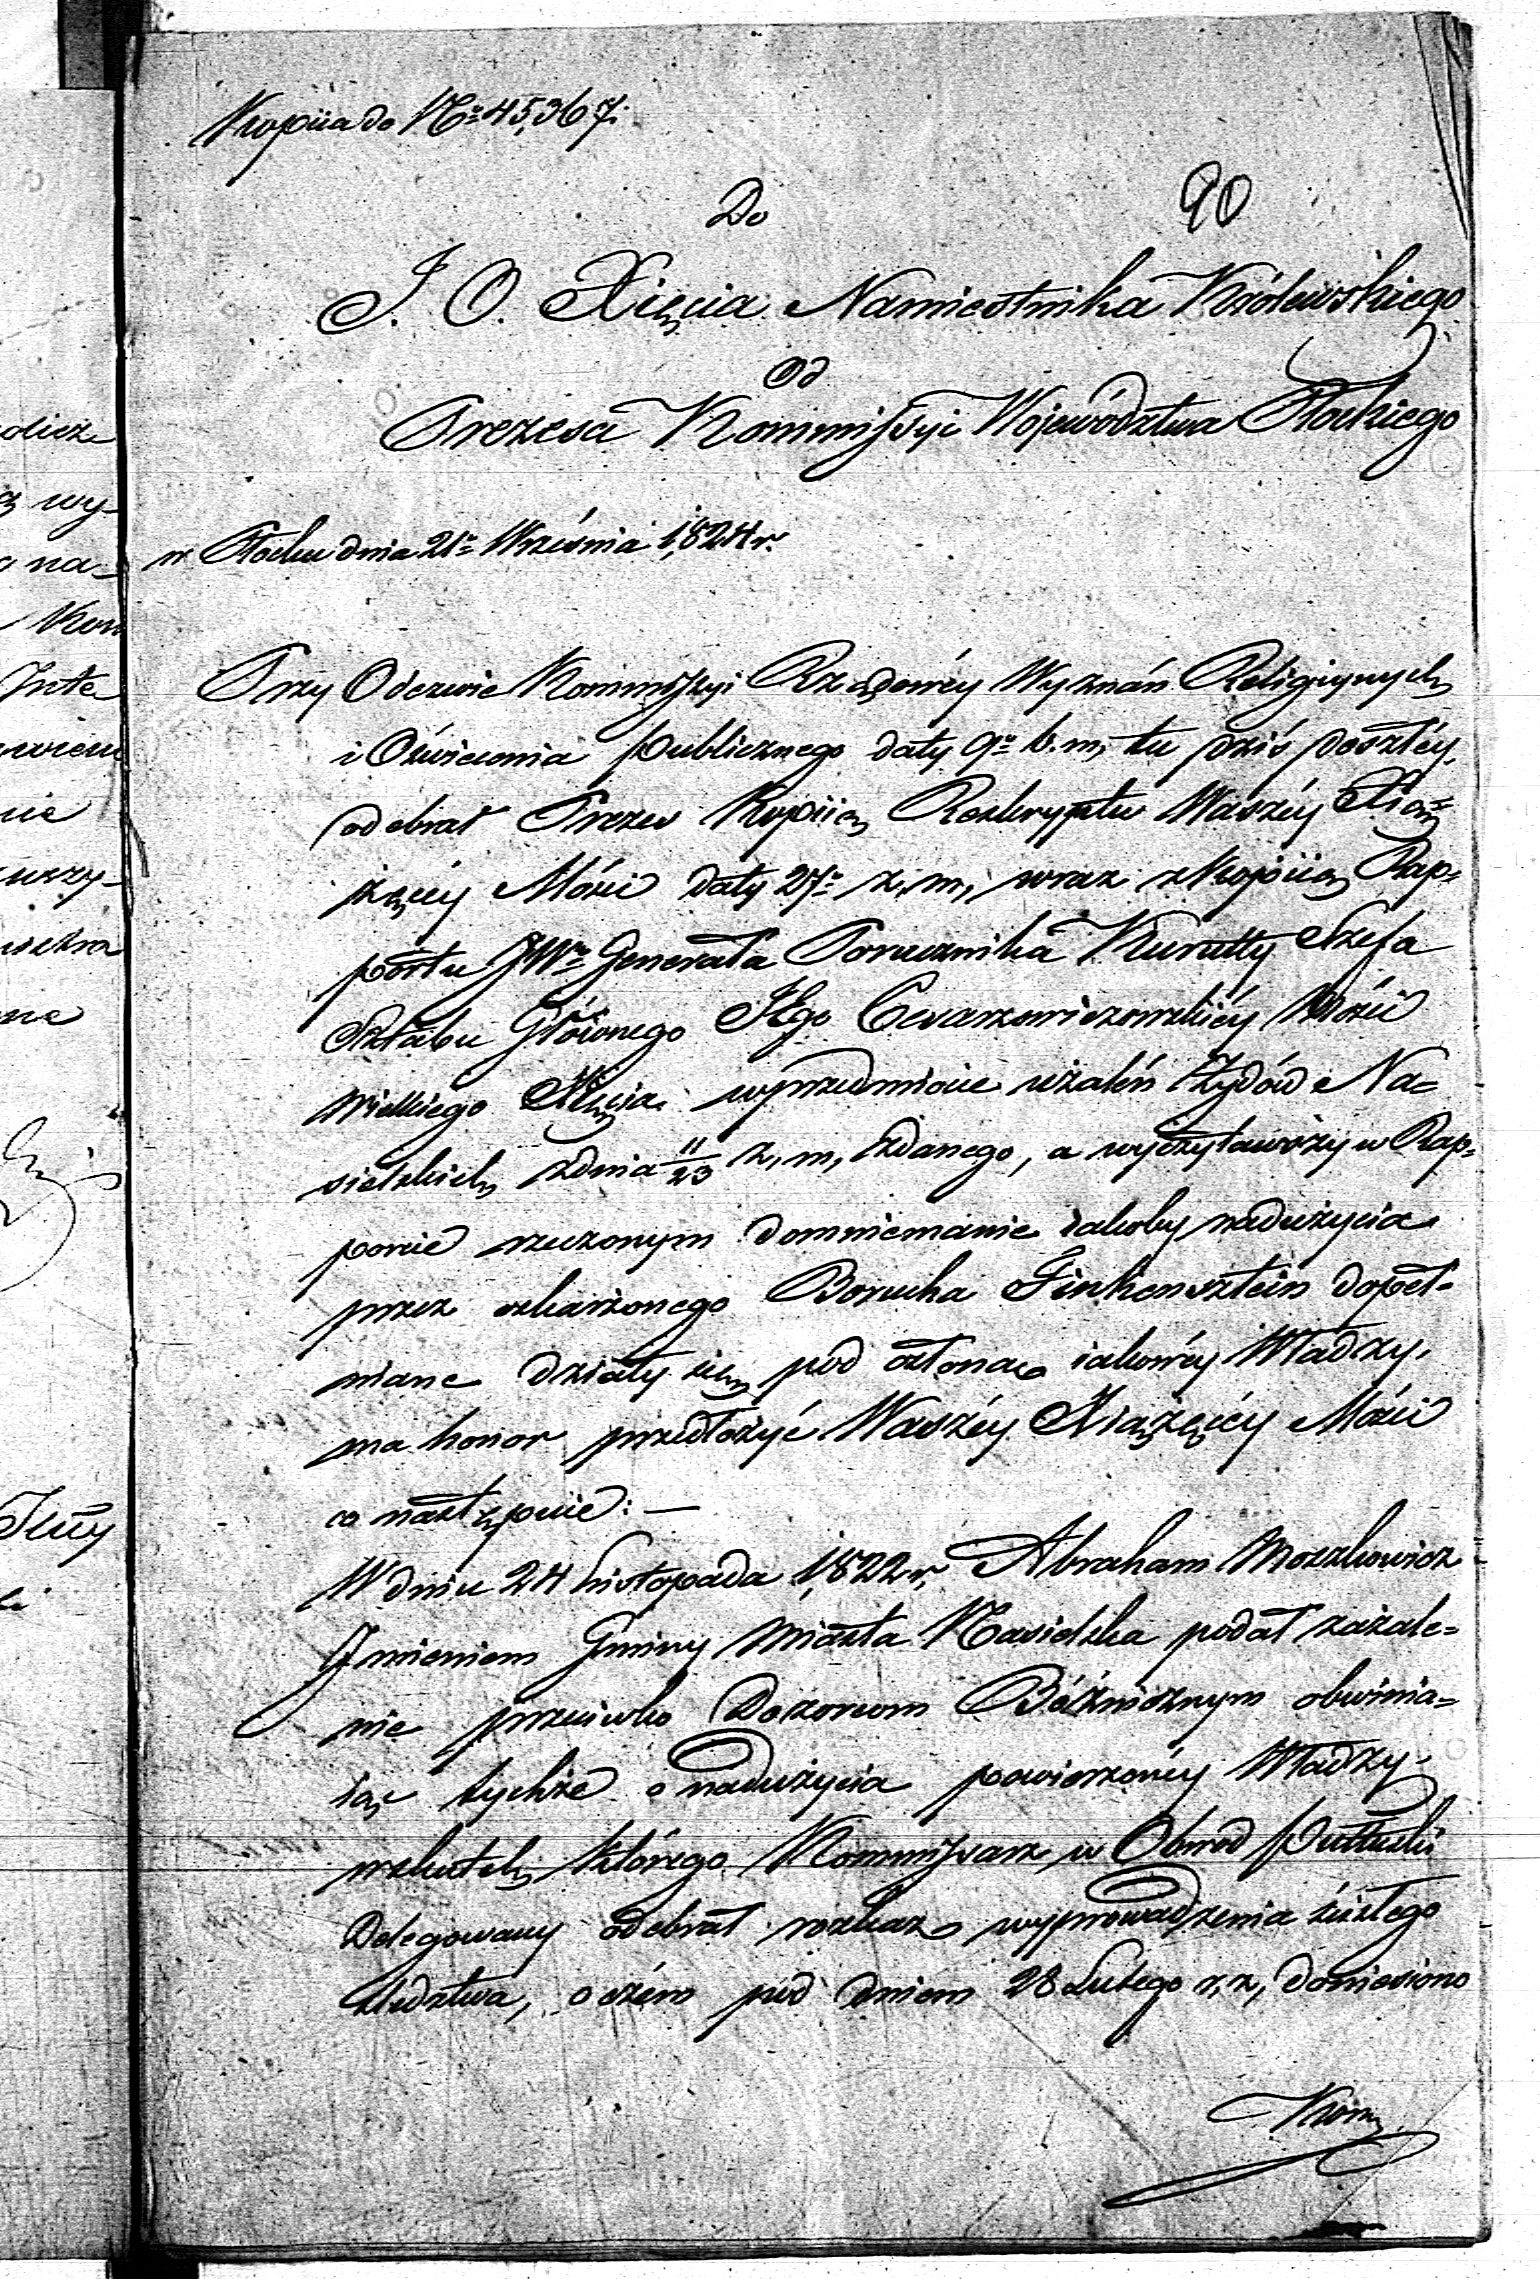 Kopiia do No 45,367.
90
Do
J. O. Xięcia Namiestnika Królewskiego
Od
Prezesa Kommissyi Województwa Płockiego
w Płocku dnia 21o Września 1824 r.
Przy Odezwie Kommissyi Rządowéy Wyznań Religiynych
i Oświecenia Publicznego daty 9o b. m, tu dziś doszłéy,
odebrał Prezes Kopiią Reskryptu Waszéy Xią=
żęcéy Mości daty 27o z, m, wraz z Kopiią Rap=
portu JWo Generała Porucznika Kurutty Szefa
Sztabu Głównego JEgo Cesarzewiczowskiéy Mości
Wielkiego Xięcia w przedmiocie użaleń Żydów Na=
sielskich z dnia 11/23 z, m, zdanego, a wyczytawszy w Rap=
porcie rzeczonym domniemanie iakoby nadużycia
przez oskarżonego Borucha Finkensztein dopeł=
niane działy się pod osłoną iakowéy Władzy,
ma honor przedłożyć Waszéy Xiążęcéy Mości
co następuie: —
W dniu 24 Listopada 1822 r, Abraham Moszkowicz
Jmieniem Gminy Miasta Nasielska podał zażale=
nie przeciwko Dozorcom Bóżnicznym obwinia=
iąc tychże o nadużycia powierzonéy Władzy,
w skutek którego Kommissarz w Obwód Pułtuski
Delegowany odebrał rozkaz wyprowadzenia ścisłego
śledztwa, o czém pod dniem 28 Lutego r, z, doniesiono
Kom
olicz
wy=
na=
Kom
wiem
nie